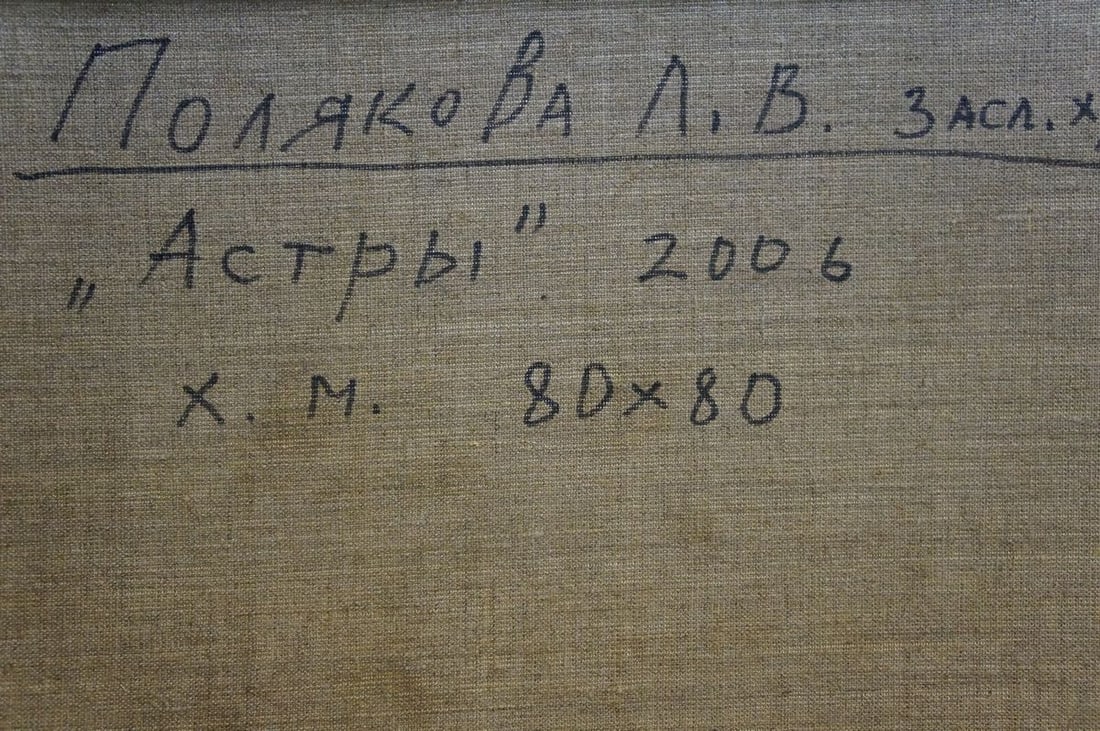 Полякова Л. В. засл. х.
„Астры" 2006
х. м. 80х80